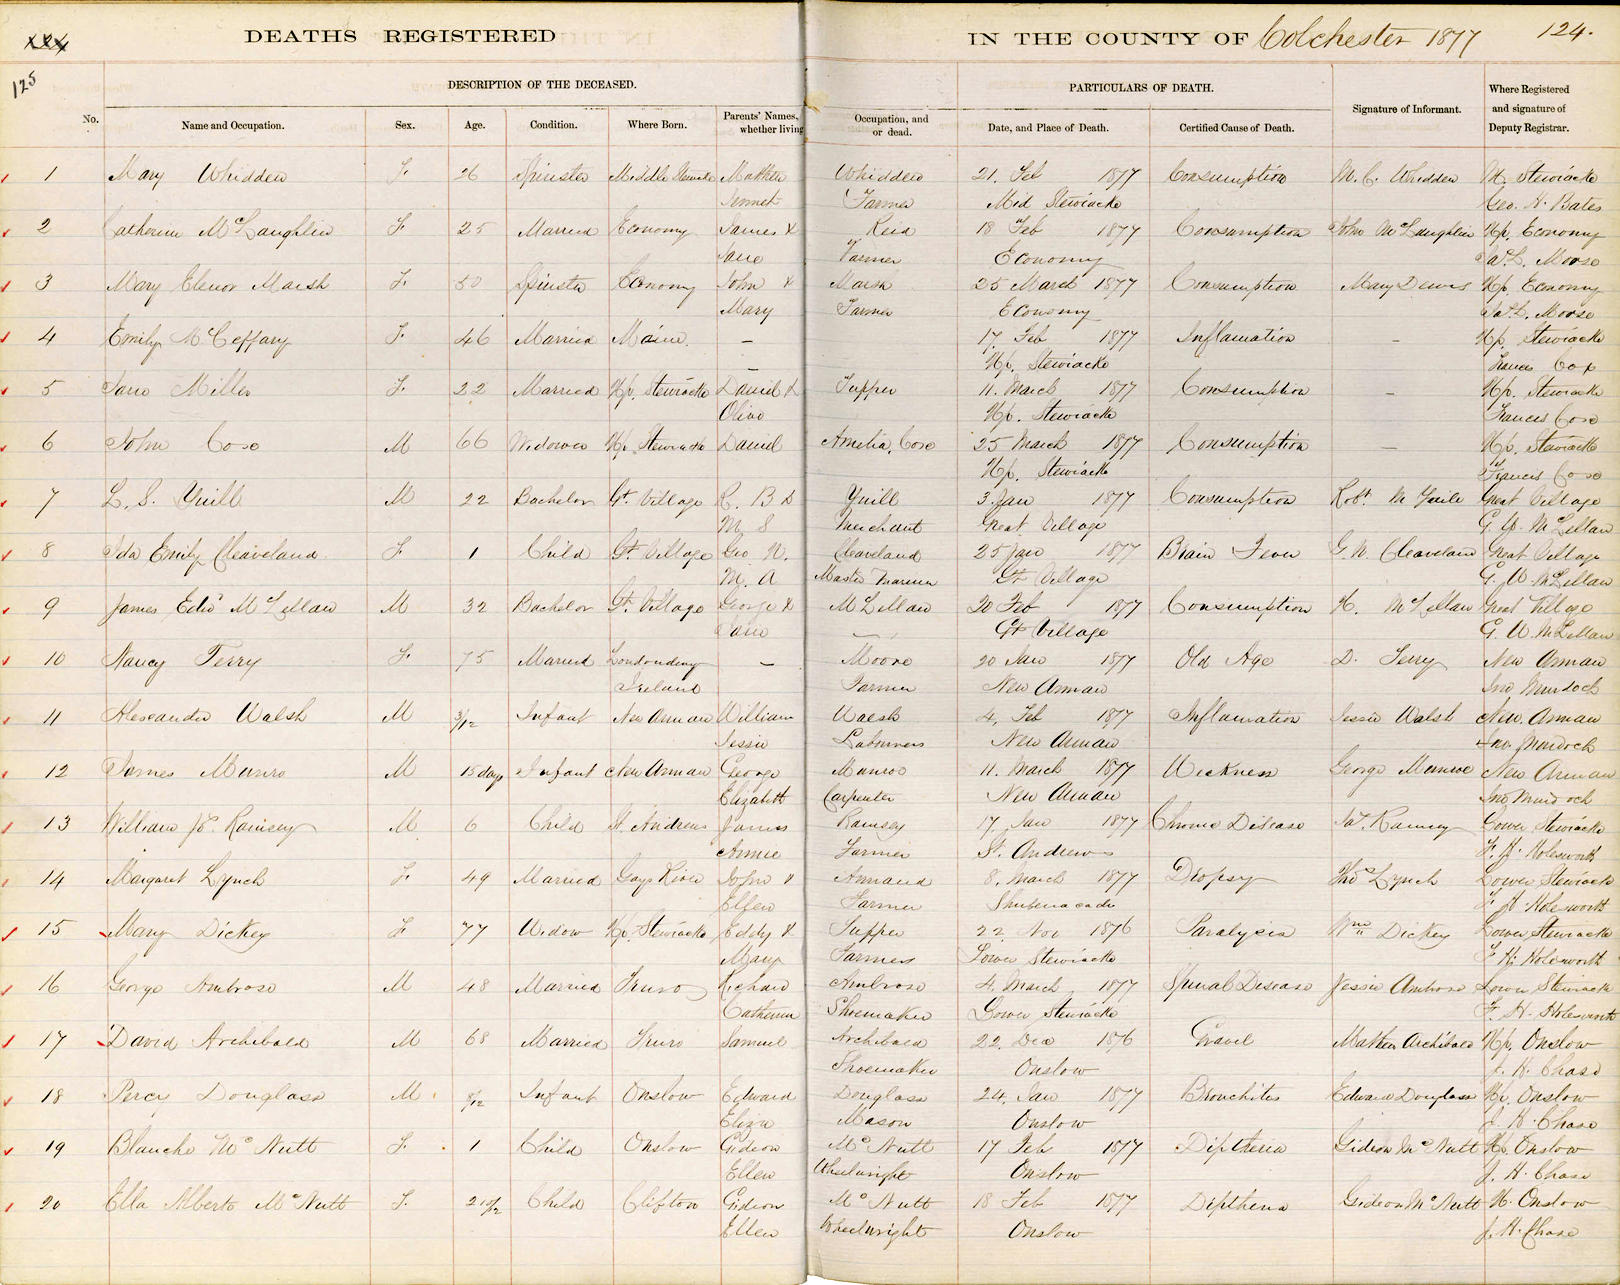 DEATHS REGISTERED IN THE COUNTY OF Colchester 1877 124.
125
DESCRIPTION OF THE DECEASED. PARTICULARS OF DEATH.
No. Name and Occupation. Sex. Age. Condition. Where Born. Parents' Names, whether living Occupation, and or dead. Date, and Place of Death. Certified Cause of Death. Signature of Informant. Where Registered and signature of Deputy Registrar.
1 Mary Whidden F. 26 Spinster Middle Stewiacke Matthew Whidden 21. Feb 1877 Consumption M. C. Whidden M. Stewiacke
Jennet Farmer Mid Stewiacke Geo. H. Bates
2 Catherine McLaughlin F. 25 Married Economy James & Reid 18 Feb 1877 Consumption John McLaughlin Up. Economy
Jane Farmer Economy Jas. L. Morse
3 Mary Elenor Marsh F. 50 Spinster Economy John & Marsh 25 March 1877 Consumption Mary Up. Economy
Mary Farmer Economy Jas. L. Morse
4 Emily McCeffary F. 46 Married Maine. — 17, Feb 1877 Inflamation — Up. Stewiacke
— Up. Stewiacke Frances Cox
5 Jane Miller F. 22 Married Up. Stewiacke Daniel & Tupper 11. March 1877 Consumption — Up. Stewiacke
Olive Up. Stewiacke Frances Coxe
6 John Coxe M 66 Widower Up. Stewiacke Daniel Amelia, Coxe 25 March 1877 Consumption — Up. Stewiacke
Up. Stewiacke Francis Coxe
7 L. S. Yuill M 22 Bachelor Gt. Village R. B & Yuill 3. Jan 1877 Consumption Robt. M Great Village
M S Merchant Great Village G. W. McLellan
8 Ida Emily Cleaveland F. 1 Child Gt. Village Geo W. Cleaveland 25 Jan 1877 Brain Fever G. W. Cleaveland Great Village
M. A Master Mariner Gt Village G. W McLellan
9 James Edwd McLellan M 32 Bachelor Gt. Village George & McLellan 20 Feb 1877 Consumption McLellan Great Village
Jane — Gt Village G. W. McLellan
10 Nancy Terry F. 75 Married Londonderry — Moore 20 Jan 1877 Old Age D. Terry New Annan
Ireland Farmer New Annan Jno Murdock
11 Alexander Walsh M 3/12 Infant New Annan William Walsh 4, Feb 1877 Inflamation Jessie Walsh New Annan
Jessie Labourer New Annan Jno. Murdock
12 James Munro M 15 days Infant New Annan George Munroe 11. March 1877 Weckness George Munroe New Annan
Elizabeth Carpenter New Annan Jno Murdock
13 William Ramsey M 6 Child St. Andrews James Ramsey 17, Jan 1877 Disease Jas. Ramsey Lower Stewiacke
Annie Farmer St. Andrews F. H. Holesworth
14 Margaret Lynch F. 49 Married Gays River John & Annand 8. March 1877 Dropsy Thos Lynch Lower Stewiacke
Ellen Farmer Shubenacadie F. H Holesworth
15 Mary Dickey F 77 Widow Up. Stewiacke Eddy & Tupper 22, Nov 1876 Paralysis Wm Dickey Lower Stewiacke
Mary Farmers Lower Stewiacke F. H. Holesworth
16 George Ambrose M 48 Married Truro Richard Ambrose 4. March 1877 Spinal Disease Jessie Ambrose Lower Stewiacke
Catherine Shoemaker Lower Stewiacke F. H. Holesworth
17 David Archibald M 68 Married Truro Samuel Archibald 22, Dec 1876 Gravel Matthew Archibald Up. Onslow
Shoemaker Onslow J. H. Chase
18 Percy Douglass M 8/12 Infant Onslow Edward Douglass 24, Jan 1877 Bronchites Edward Douglass Up. Onslow
Eliza Mason Onslow J. H. Chase
19 Blanche McNutt F. 1 Child Onslow Gideon McNutt 17 Feb 1877 Diptheria Gideon McNutt Up. Onslow
Ellen Wheelwright Onslow J. H. Chase
20 Ella Alberta McNutt F. 2 10/12 Child Clifton Gideon McNutt 18 Feb 1877 Diptheria Gideon McNutt U. Onslow
Ellen Wheelwright Onslow J. H. Chase